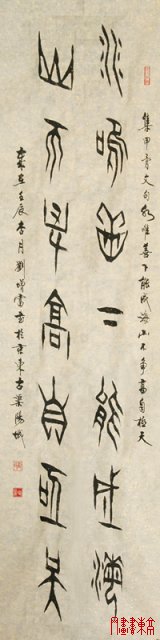 集甲骨文句水唯善下能成海山不爭高自極天
水唯善下能成海
山不爭高自極天
歲在壬辰杏月劉書於京東古漁陽城